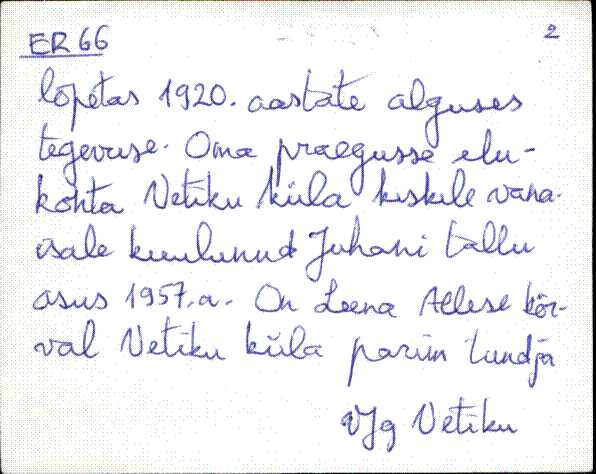 ER 66 2
lõpetas 1920. aastate alguses
tegevuse. Oma praegusse elu-
kohta Vetiku küla keskele vana-
isale kuulunud Juhani tallu
asus 1957.a. On Leena Allese kõr-
val Vetiku küla parim tundja
VJg Vetiku